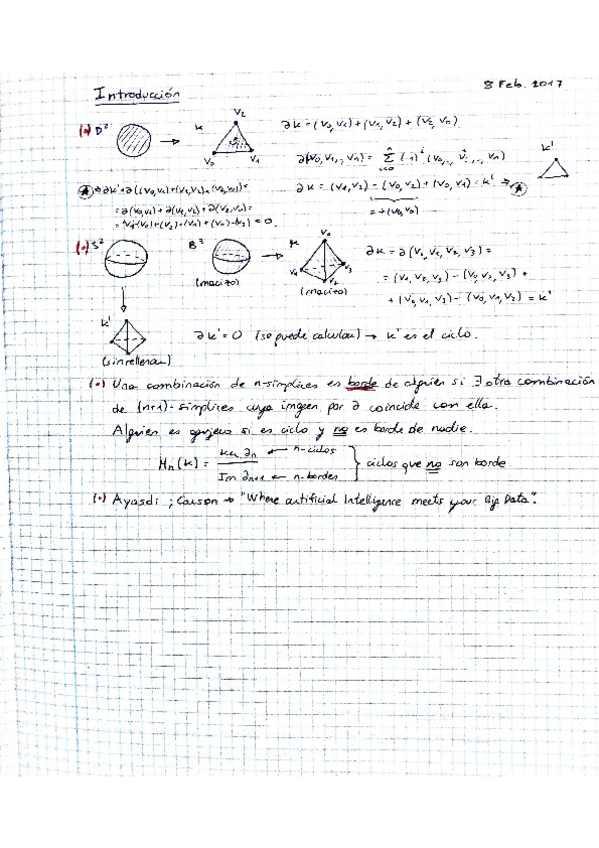 8 Feb. 2017
Introducción
(•) D² → K V₂ V₀ V₁ ∂K = (V₀,V₁) + (V₁,V₂) + (V₂,V₀)
∂(V₀,V₁,..,Vₙ) = Σ (-1)ⁱ (V₀,..,V̂ᵢ,..,Vₙ) K'
∂K = (V₁,V₂) - (V₀,V₂) + (V₀,V₁) = K' →
→ ∂K' = ∂((V₀,V₁)+(V₁,V₂)+(V₂,V₀)) =
= ∂(V₀,V₁) + ∂(V₁,V₂) + ∂(V₂,V₀) =
= 0.
(•) S² B³ → K ∂K = ∂(V₀,V₁,V₂,V₃) =
(macizo) (macizo) = (V₁,V₂,V₃) - (V₀,V₂,V₃) +
+ (V₀,V₁,V₃) - (V₀,V₁,V₂) = K'
K' ∂K' = 0 (se puede calcular) → K' es el ciclo.
(sin rellenar)
(•) Una combinación de n-simplices es borde de alguien si ∃ otra combinación
de (n+1)-simplices cuya imagen por ∂ coincide con ella.
Alguien es agujero si es ciclo y no es borde de nadie.
Hₙ(K) = Ker ∂ₙ ← n-ciclos / Im ∂ₙ₊₁ ← n-bordes } ciclos que no son borde
(•) Ayasdi ; → "Where artificial Intelligence meets your Big Data".